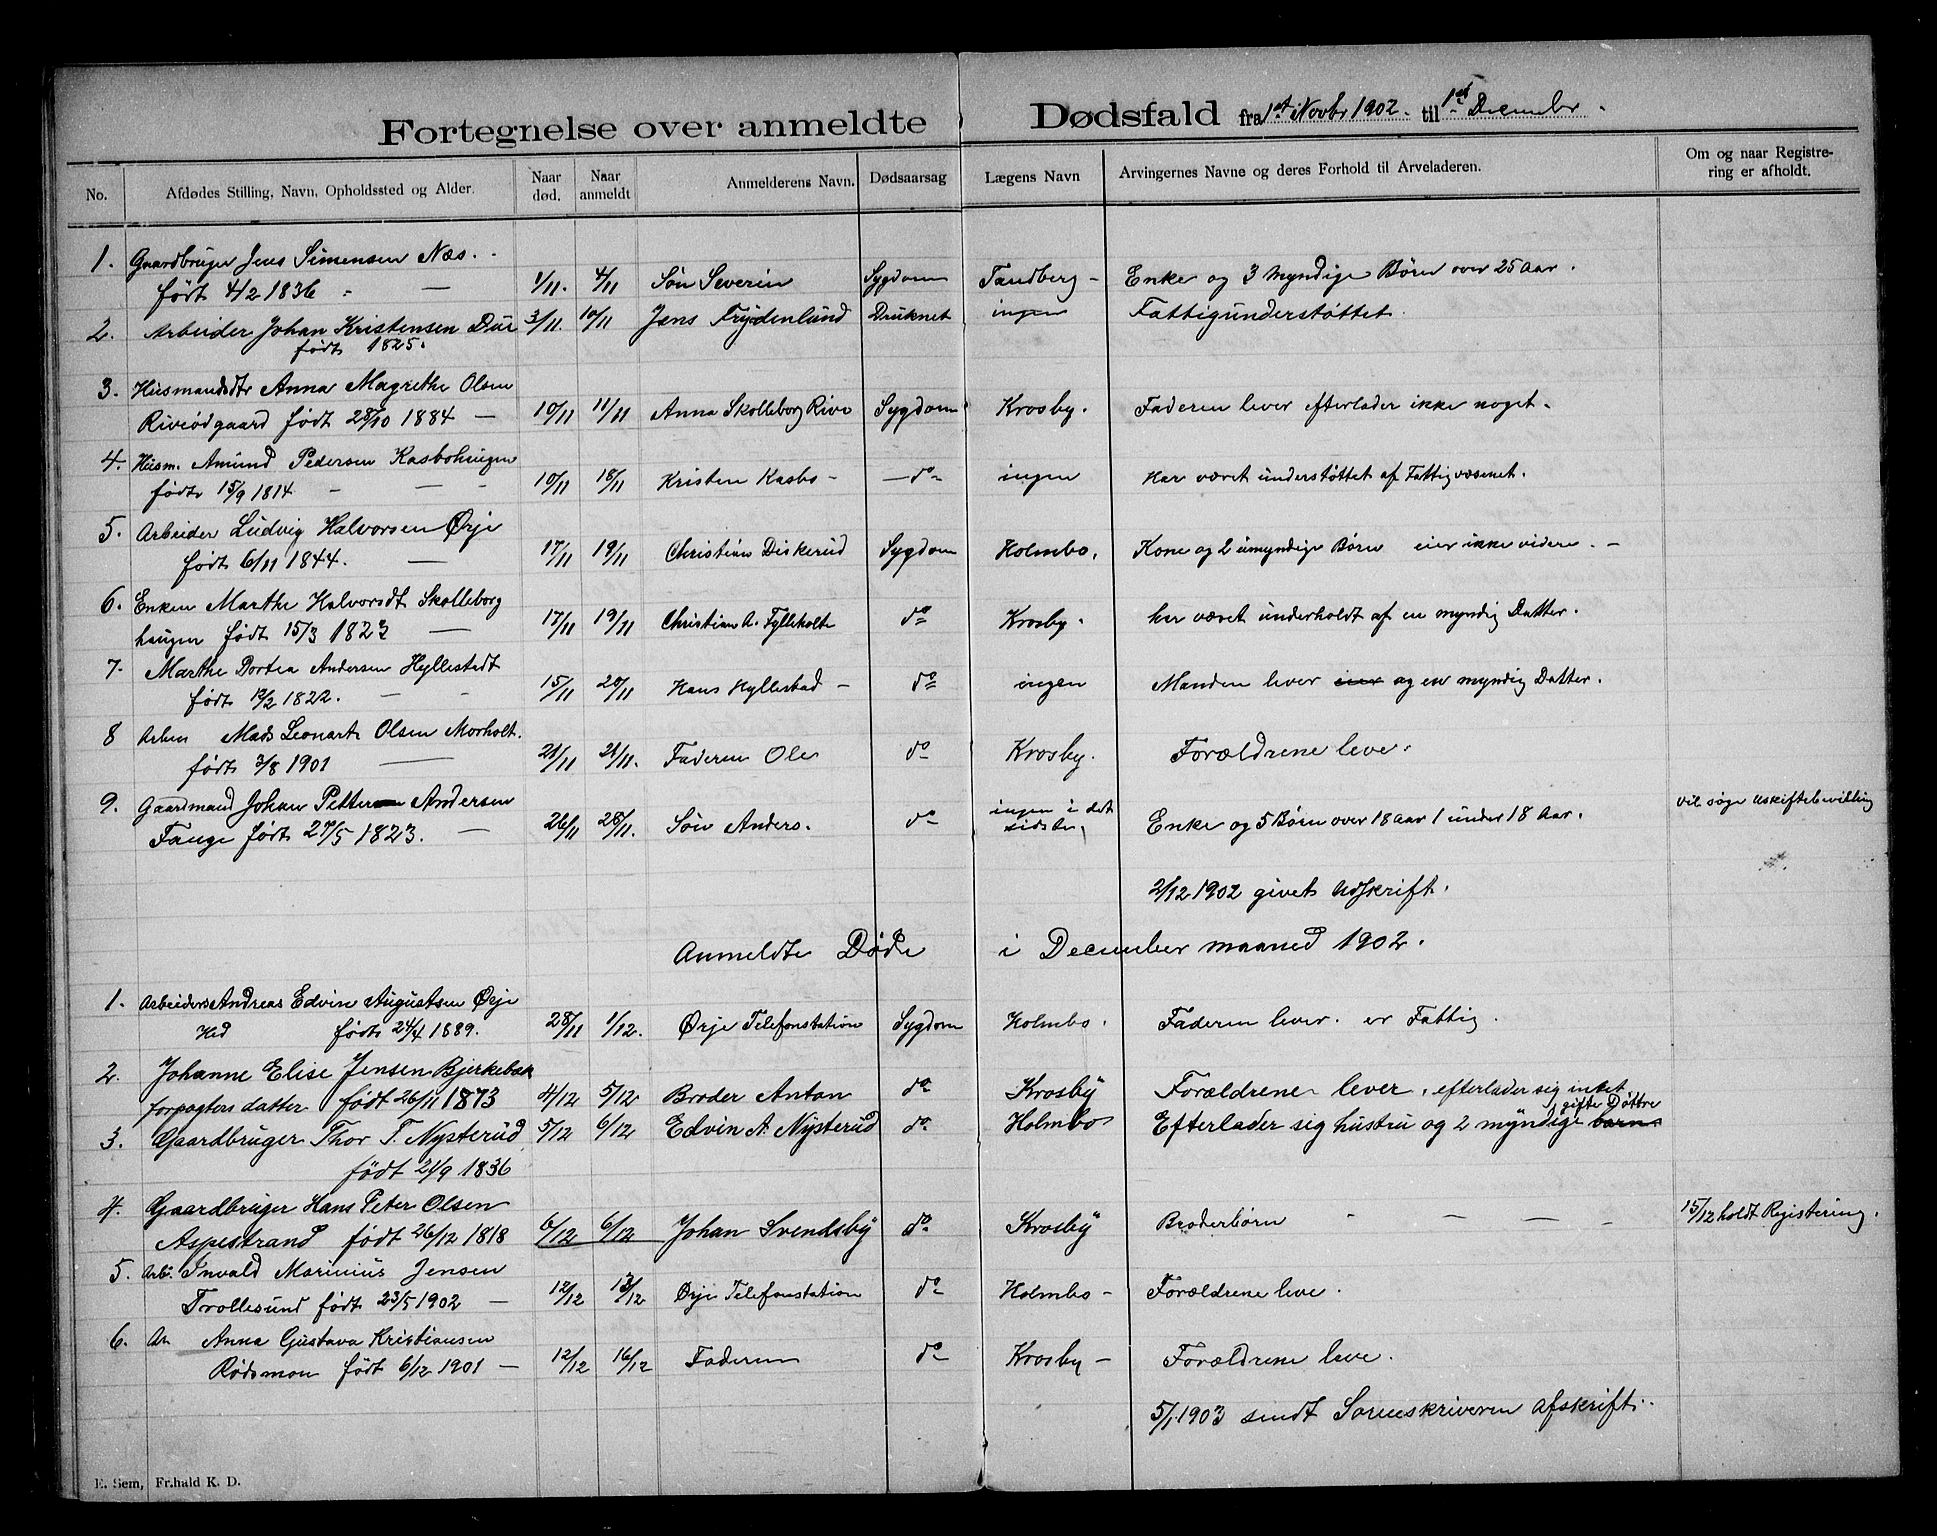 Fortegnelse over anmeldte Dødsfald fra 1st Novbr 1902. til 1st Decembr.
No. Afdødes Stilling, Navn, Opholdssted og Alder. Naar død. Naar anmeldt Anmelderens Navn. Dødsaarsag Lægens Navn Arvingernes Navne og deres Forhold til Arveladeren. Om og naar Registrering er afholdt.
1. Gaardbruger Jens Simensen Næs.
født 4/2 1836 - — 1/11. 4/11 Søn Severin Sygdom Tandberg - Enke og 3 myndige Børn over 25 Aar.
2. Arbeider Johan Kristensen Dur 3/11. 10/11 Jens Frydenlund Druknet ingen Fattigunderstøttet.
født 1825.
3. Husmandsdtr Anna Magrethe Olsen
Riveødgaard født 28/10 1884 — 10/11 11/11 Anna Skolleborg Rive Sygdom Krosby. Faderen lever efterlader ikke noget.
4. Husm. Amund Pedersen Kasbohaugen
født 15/9 1814 - — - 10/11 18/11 Kristen Kasbo - — do - ingen Har været understøttet af Fattigvæsenet.
5. Arbeider Ludvig Halvorsen Ørje
født 6/11 1844. — 17/11 19/11 Christian Diskerud Sygdom Holmbo, Kone og 2 umyndige Børn eier ikke videre. -
6. Enken Marthe Halvorsdt Skolleborg
haugen født 15/3 1823 — 17/11 19/11 Christian A. Fylleholt do Krosby. har været underholdt af en myndig Datter.
7. Marthe Dortea Andersen Hyllestadt
født 12/2 1822. — - 15/11 20/11 Hans Hyllestad - do ingen Manden lever og en myndig Datter.
8 Arben Mads Leonart Olsen Morholt.
født 3/8 1901 — 21/11 21/11. Faderen Ole do Krosby. Forældrene leve.
9. Gaardmand Johan Petter Andersen ingen i det vil søge uskiftebevilling
Tange født 27/5 1823. — 26/11 28/11. Søn Anders. do sidste. Enke og 5 Børn over 18 Aar 1 under 18 Aar.
2/12 1902 givet Udskrift.
Anmeldte Døde i December maaned 1902.
1. Arbeiders Andreas Edvin Augustsen Ørje
Hed født 24/4 1889. 28/11 1/12. Ørje Telefonstation Sygdom Holmbo. Faderen lever. er Fattig.
2. Johanne Elise Jensen Bjerkebæk
forpagters datter født 26/11 1873 4/12 5/12 Broder Anton do Krosby Forældrene lever, efterlader sig intet
3. Gaardbruger Thor T. Nysterud 5/12 6/12 Edvin A. Nysterud do Holmbo Efterlader sig hustru og 2 myndige gifte Døttre barn
født 21/9 1836
4. Gaardbruger Hans Peter Olsen
Aspestrand født 26/12 1818 6/12 6/12 Johan Svendsby do Krosby Broderbørn - — — - 15/12 holdt Registering.
5. Arb. Invald Marinius Jensen
Trollesund født 23/5 1902 — 12/12 13/12 Ørje Telefonstation do Holmbo - Forældrene leve.
6. Ar. Anna Gustava Kristiansen
Rødsmon født 6/12 1901 — 12/12 16/12 Faderen do Krosby - Forældrene leve.
5/1 1903 sendt Sorenskriveren Afskrift.
E. Sem, Fr.hald K. D.